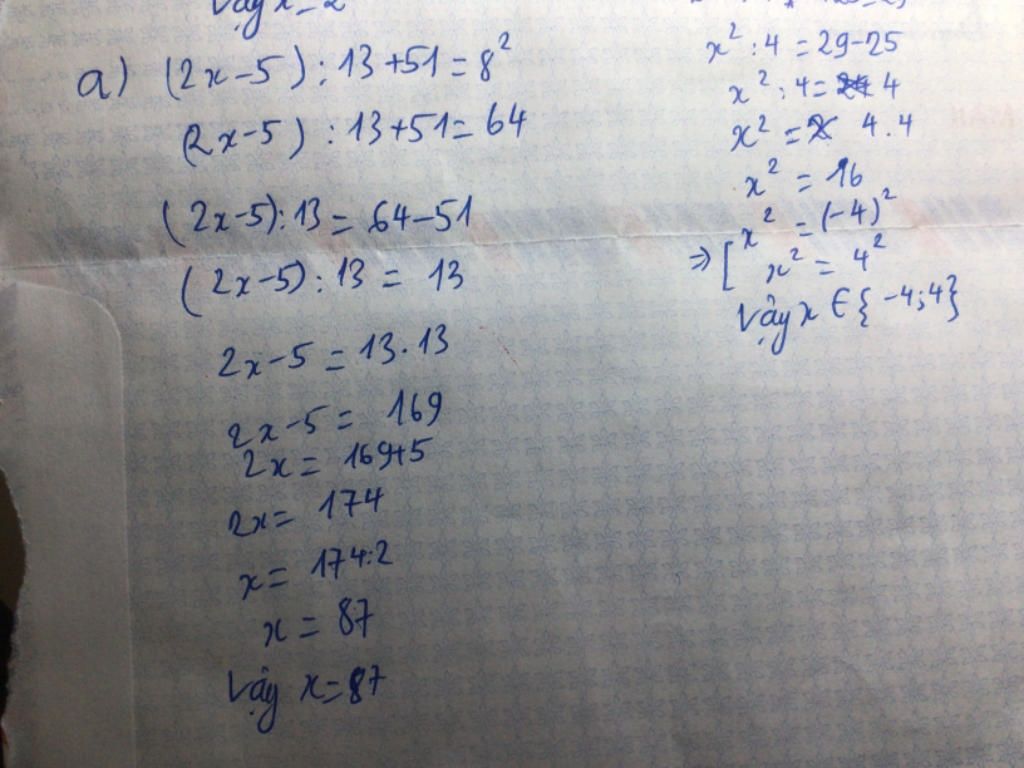 Vậy x=2
a) (2x-5):13+51=8²
(2x-5):13+51=64
(2x-5):13=64-51
(2x-5):13=13
2x-5=13.13
2x-5=169
2x=169+5
2x=174
x=174:2
x=87
Vậy x=87
x²:4=29-25
x²:4=4
x²=4.4
x²=16
x²=(-4)²
⇒[ x²=4²
Vậy x∈{-4;4}